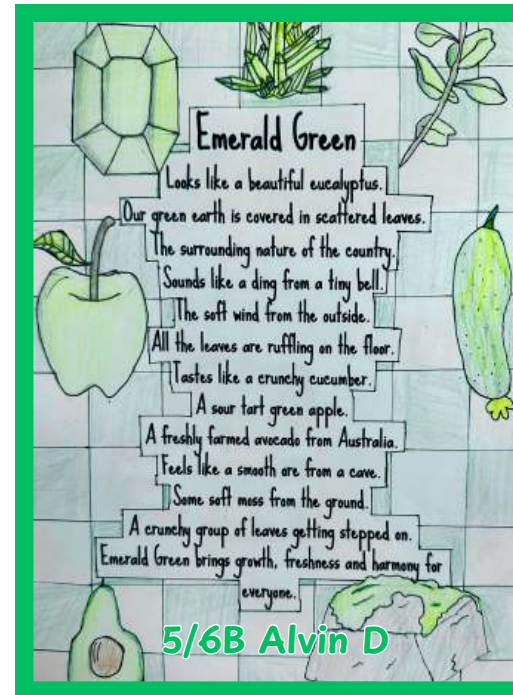 Emerald Green
Looks like a beautiful eucalyptus.
Our green earth is covered in scattered leaves.
The surrounding nature of the country.
Sounds like a ding from a tiny bell.
The soft wind from the outside.
All the leaves are ruffling on the floor.
Tastes like a crunchy cucumber.
A sour tart green apple.
A freshly farmed avocado from Australia.
Feels like a smooth ore from a cave.
Some soft moss from the ground.
A crunchy group of leaves getting stepped on.
Emerald Green brings growth, freshness and harmony for
everyone.
5/6B Alvin D